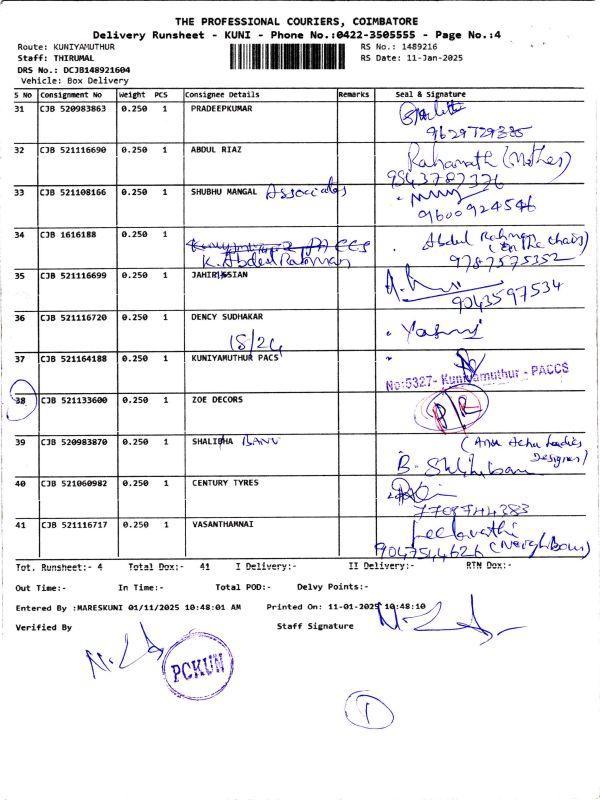 THE PROFESSIONAL COURIERS, COIMBATORE
Delivery Runsheet - KUNI - Phone No.:0422-3505555 - Page No.:4
Route: KUNIYAMUTHUR RS No.: 1489216
Staff: THIRUMAL RS Date: 11-Jan-2025
DRS No.: DCJB148921604
Vehicle: Box Delivery
S No Consignment No Weight PCS Consignee Details Remarks Seal & Signature
31 CJB 520983863 0.250 1 PRADEEPKUMAR
9629729335
32 CJB 521116690 0.250 1 ABDUL RIAZ Rahamath (Mother)
9543787376
33 CJB 521108166 0.250 1 SHUBHU MANGAL Associates
9600924546
34 CJB 1616188 0.250 1 Abdul Rahman
K. Abdul Rahman (on the chair)
9787575352
35 CJB 521116699 0.250 1 JAHIR HUSSIAN
9043597534
36 CJB 521116720 0.250 1 DENCY SUDHAKAR
18/24
37 CJB 521164188 0.250 1 KUNIYAMUTHUR PACS
No:5327- Kuniyamuthur - PACCS
38 CJB 521133600 0.250 1 ZOE DECORS
39 CJB 520983870 0.250 1 SHALIBHA BANU
Designer)
40 CJB 521060982 0.250 1 CENTURY TYRES
7708744383
41 CJB 521116717 0.250 1 VASANTHAMNAI Leelavathi
9047544626 (Neighbour)
Tot. Runsheet:- 4 Total Dox:- 41 I Delivery:- II Delivery:- RTN Dox:-
Out Time:- In Time:- Total POD:- Delvy Points:-
Entered By :MARESKUNI 01/11/2025 10:48:01 AM Printed On: 11-01-2025 10:48:10
Verified By Staff Signature
PCKUN
1